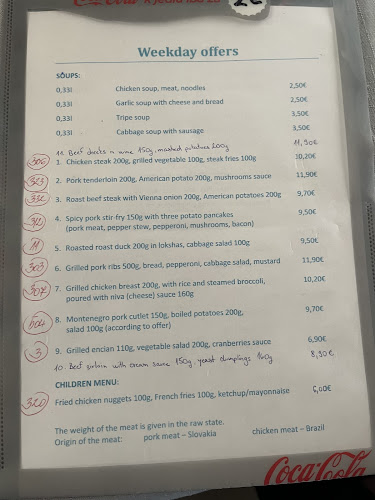 Weekday offers
SOUPS:
0,33l Chicken soup, meat, noodles 2,50€
0,33l Garlic soup with cheese and bread 2,50€
0,33l Tripe soup 3,50€
0,33l Cabbage soup with sausage 3,50€
11. Beef cheeks in wine 150g, mashed potatoes 200g 11,50€
306 1. Chicken steak 200g, grilled vegetable 100g, steak fries 100g 10,20€
323 2. Pork tenderloin 200g, American potato 200g, mushrooms sauce 11,90€
332 3. Roast beef steak with Vienna onion 200g, American potatoes 200g 9,70€
312 4. Spicy pork stir-fry 150g with three potato pancakes 9,50€
(pork meat, pepper stew, pepperoni, mushrooms, bacon)
11 5. Roasted roast duck 200g in lokshas, cabbage salad 100g 9,50€
303 6. Grilled pork ribs 500g, bread, pepperoni, cabbage salad, mustard 11,90€
307 7. Grilled chicken breast 200g, with rice and steamed broccoli, 10,20€
poured with niva (cheese) sauce 160g
604 8. Montenegro pork cutlet 150g, boiled potatoes 200g, 9,70€
salad 100g (according to offer)
3 9. Grilled encian 110g, vegetable salad 200g, cranberries sauce 6,90€
10. Beef sirloin with cream sauce 150g, yeast dumplings 160g 8,90€
CHILDREN MENU:
320 Fried chicken nuggets 100g, French fries 100g, ketchup/mayonnaise 6,00€
The weight of the meat is given in the raw state.
Origin of the meat: pork meat – Slovakia chicken meat – Brazil
Coca-Cola